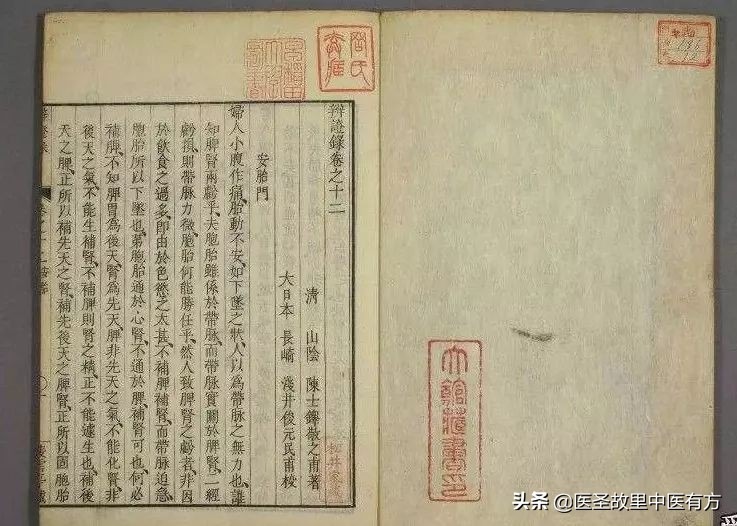 辨證錄卷之十二
清 山陰 陳士鐸敬之甫著
大日本 長崎 淺井俊元民甫校
安胎門
婦人小腹作痛胎動不安如下墜之狀人以為帶脈之無力也誰
知脾腎兩虧乎夫胞胎雖係於帶脈而帶脈實關於脾腎一經
虧損則帶脈力微胞胎何能勝任乎然人致脾腎之虧者非因
於飲食之過多即由於色慾之太甚不補脾補腎而帶脈迫急
胞胎所以下墜也第胞胎通於心腎不通於脾補腎可也何必
補脾不知脾胃為後天腎為先天脾非先天之氣不能化腎非
後天之氣不能生補腎不補脾則腎之精正不能遽生也補後
天之脾正所以補先天之腎補先後天之脾腎正所以固胞胎
頭条 @医圣故里中医有方